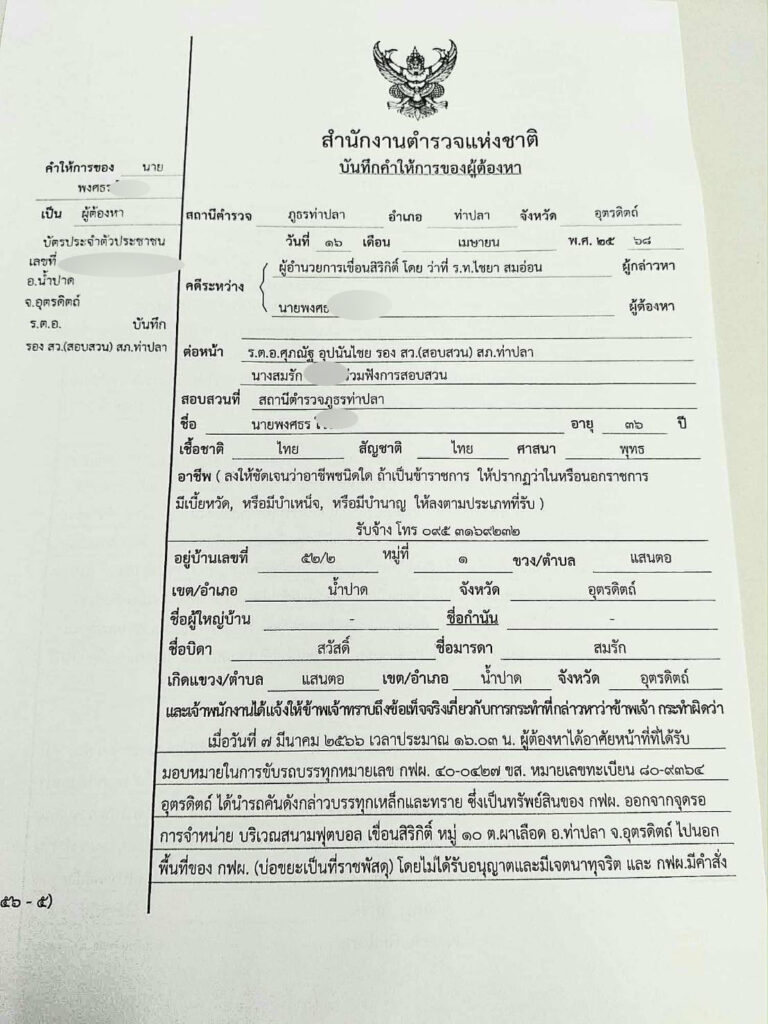 สำนักงานตำรวจแห่งชาติ
บันทึกคำให้การของผู้ต้องหา
คำให้การของ นาย
พงศธร
เป็น ผู้ต้องหา
บัตรประจำตัวประชาชน
เลขที่
อ.น้ำปาด
จ.อุตรดิตถ์
ร.ต.อ. บันทึก
รอง สว.(สอบสวน) สภ.ท่าปลา
สถานีตำรวจ ภูธรท่าปลา อำเภอ ท่าปลา จังหวัด อุตรดิตถ์
วันที่ ๑๖ เดือน เมษายน พ.ศ. ๒๕ ๖๘
คดีระหว่าง
ผู้อำนวยการเขื่อนสิริกิติ์ โดย ว่าที่ ร.ท.ไชยา สมอ่อน ผู้กล่าวหา
นายพงศธ ผู้ต้องหา
ต่อหน้า ร.ต.อ.ศุภณัฐ อุปนันไชย รอง สว.(สอบสวน) สภ.ท่าปลา
นางสมรัก ร่วมฟังการสอบสวน
สอบสวนที่ สถานีตำรวจภูธรท่าปลา
ชื่อ นายพงศธร อายุ ๓๖ ปี
เชื้อชาติ ไทย สัญชาติ ไทย ศาสนา พุทธ
อาชีพ ( ลงให้ชัดเจนว่าอาชีพชนิดใด ถ้าเป็นข้าราชการ ให้ปรากฏว่าในหรือนอกราชการ
มีเบี้ยหวัด, หรือมีบำเหน็จ, หรือมีบำนาญ ให้ลงตามประเภทที่รับ )
รับจ้าง โทร ๐๙๕ ๓๑๖๙๒๓๒
อยู่บ้านเลขที่ ๕๒/๒ หมู่ที่ ๑ ขวง/ตำบล แสนตอ
เขต/อำเภอ น้ำปาด จังหวัด อุตรดิตถ์
ชื่อผู้ใหญ่บ้าน - ชื่อกำนัน -
ชื่อบิดา สวัสดิ์ ชื่อมารดา สมรัก
เกิดแขวง/ตำบล แสนตอ เขต/อำเภอ น้ำปาด จังหวัด อุตรดิตถ์
และเจ้าพนักงานได้แจ้งให้ข้าพเจ้าทราบถึงข้อเท็จจริงเกี่ยวกับการกระทำที่กล่าวหาว่าข้าพเจ้า กระทำผิดว่า
เมื่อวันที่ ๗ มีนาคม ๒๕๖๖ เวลาประมาณ ๑๖.๐๓ น. ผู้ต้องหาได้อาศัยหน้าที่ที่ได้รับ
มอบหมายในการขับรถบรรทุกหมายเลข กฟผ. ๔๐-๐๔๒๗ ขส. หมายเลขทะเบียน ๘๐-๙๓๖๔
อุตรดิตถ์ ได้นำรถคันดังกล่าวบรรทุกเหล็กและทราย ซึ่งเป็นทรัพย์สินของ กฟผ. ออกจากจุดรอ
การจำหน่าย บริเวณสนามฟุตบอล เขื่อนสิริกิติ์ หมู่ ๑๐ ต.ผาเลือด อ.ท่าปลา จ.อุตรดิตถ์ ไปนอก
พื้นที่ของ กฟผ. (บ่อขยะเป็นที่ราชพัสดุ) โดยไม่ได้รับอนุญาตและมีเจตนาทุจริต และ กฟผ.มีคำสั่ง
๕๖ - ๕)